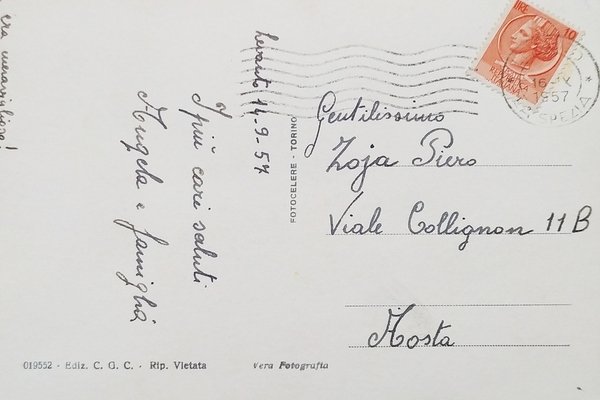 era meravigliosa!
Levanto 14-9-57
I più cari saluti
Angela e famiglia
FOTOCELERE - TORINO
LIRE 10
16
1957
SPEZIA
Gentilissimo
Zoja Piero
Viale Collignon 11 B
Aosta
019552 - Ediz. C. G. C. - Rip. Vietata
Vera Fotografia